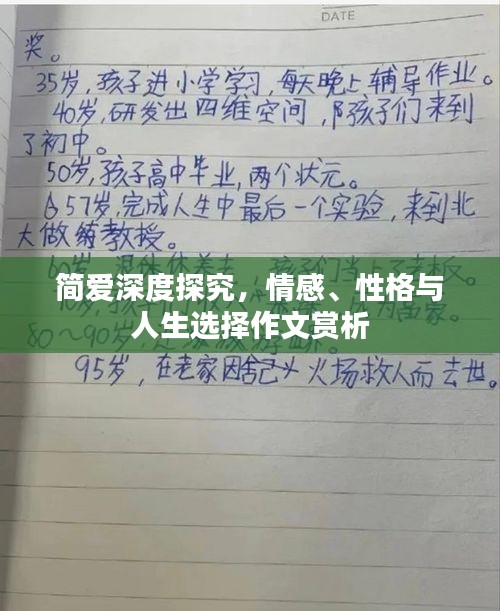 DATE
奖。
35岁,孩子进小学学习,每天晚上辅导作业。
40岁,研发出四维空间,阝孩子们来到
了初中。
50岁,孩子高中毕业,两个状元。
57岁,完成人生中最后一个实验,来到北
大做教授。
简爱深度探究，情感、性格与
人生选择作文赏析
80~90岁
95岁,在老家因舍己 火场救人而去世。